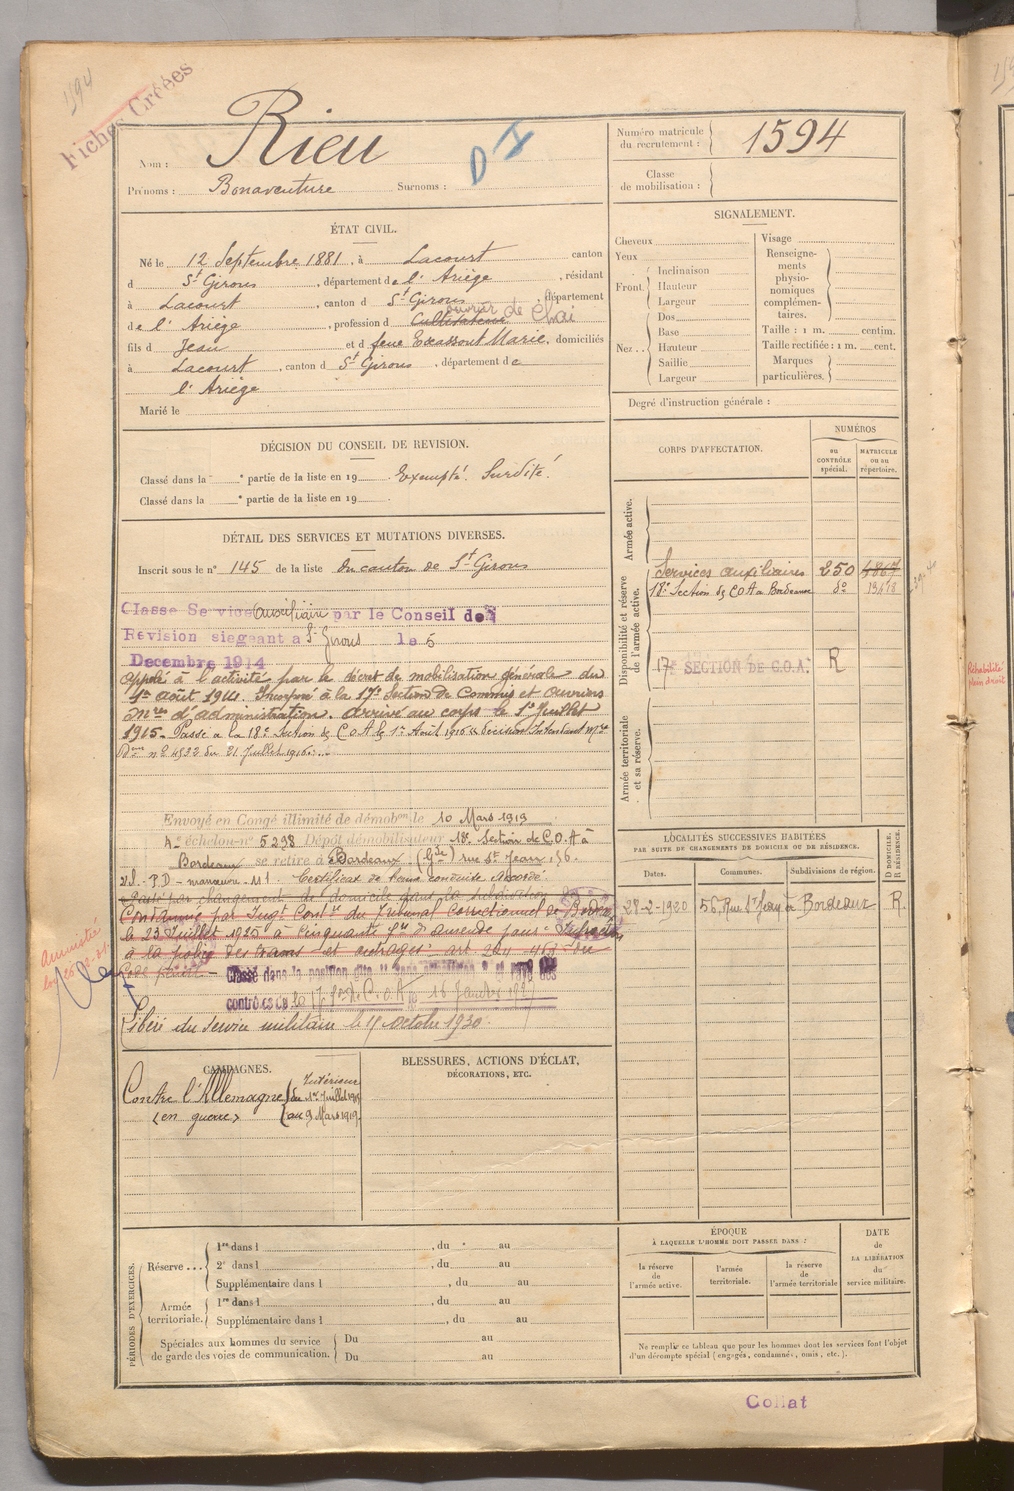 1594
Fiches Créées
Nom : Rieu
D I
Prénoms : Bonaventure Surnoms :
Numéro matricule du recrutement : 1594
Classe de mobilisation :
ÉTAT CIVIL.
Né le 12 Septembre 1881, à Lacourt canton
d St Girons, département de l'Ariège, résidant
à Lacourt, canton d St Girons, département
de l'Ariège, profession d Cultivateur ouvrier de chai
fils d Jean et d feue Escassout Marie, domiciliés
à Lacourt, canton d St Girons, département de
l'Ariège
Marié le
SIGNALEMENT.
Cheveux
Yeux
Front. Inclinaison
Hauteur
Largeur
Nez. . Dos
Base
Hauteur
Saillie
Largeur
Visage
Renseigne-
ments
physio-
nomiques
complémen-
taires.
Taille : 1 m. centim.
Taille rectifiée : 1 m. cent.
Marques
particulières.
Degré d'instruction générale :
DÉCISION DU CONSEIL DE REVISION.
Classé dans la e partie de la liste en 19 . Exempté. Surdité.
Classé dans la e partie de la liste en 19 .
DÉTAIL DES SERVICES ET MUTATIONS DIVERSES.
Inscrit sous le n° 145 de la liste du canton de St Girons
Classé Service Auxiliaire par le Conseil de
Revision siegeant a St Girons le 5
Decembre 1914
Appelé à l'activité par le décret de mobilisation générale du
1er août 1914. Incorporé à la 17e Section de Commis et ouvriers
mres d'administration. Arrivé au corps le 1er Juillet
1915. Passé à la 18e Section de C.O.A le 1er Août 1916
n° 4922 du 21 Juillet 1916.
Envoyé en Congé illimité de démobon le 10 Mars 1919
4e échelon n° 5298 Dépôt démobilisateur 18e Section de C.O.A à
Bordeaux se retire à Bordeaux (Gde) rue St Jean, 56.
Certificat de bonne conduite Accordé.
Passé par changement de domicile dans la subdivision de
Condamné par Jugt Contre du Tribunal Correctionnel de Bordeaux
le 23 Juillet 1925 à Cinquante frs d'amende pour Infraction
à la police des trains et outrages art 224 463 du
Code pénal
Amnistié
Classé dans la position dite
contrôles de la 17e Son de C.O.A le 16 Janvier 1927
Libéré du service militaire le 15 octobre 1930.
CORPS D'AFFECTATION.
NUMÉROS
au CONTRÔLE spécial.
MATRICULE ou au répertoire.
Armée active.
Disponibilité et réserve de l'armée active.
Services auxiliaires 250 4867
18e Section de C.O.A Bordeaux do 13418
17e SECTION DE C.O.A. R
Réhabilité
plein droit
Armée territoriale et sa réserve.
LOCALITÉS SUCCESSIVES HABITÉES
PAR SUITE DE CHANGEMENTS DE DOMICILE OU DE RÉSIDENCE.
Dates. Communes. Subdivisions de région. D DOMICILE. R RÉSIDENCE.
28-2-1920 56 Rue St Jean à Bordeaux R.
CAMPAGNES.
Contre l'Allemagne
(en guerre)
Intérieur
du 1er Juillet 1915
au 9 Mars 1919.
BLESSURES, ACTIONS D'ÉCLAT,
DÉCORATIONS, ETC.
PÉRIODES D'EXERCICES.
Réserve . . .
1re dans l , du au
2e dans l , du au
Supplémentaire dans l , du au
Armée territoriale.
1re dans l , du au
Supplémentaire dans l , du au
Spéciales aux hommes du service
de garde des voies de communication.
Du au
Du au
ÉPOQUE
À LAQUELLE L'HOMME DOIT PASSER DANS :
la réserve de l'armée active.
l'armée territoriale.
la réserve de l'armée territoriale
DATE de LA LIBÉRATION du service militaire.
Ne remplir ce tableau que pour les hommes dont les services font l'objet
d'un décompte spécial (engagés, condamnés, omis, etc.).
Collat